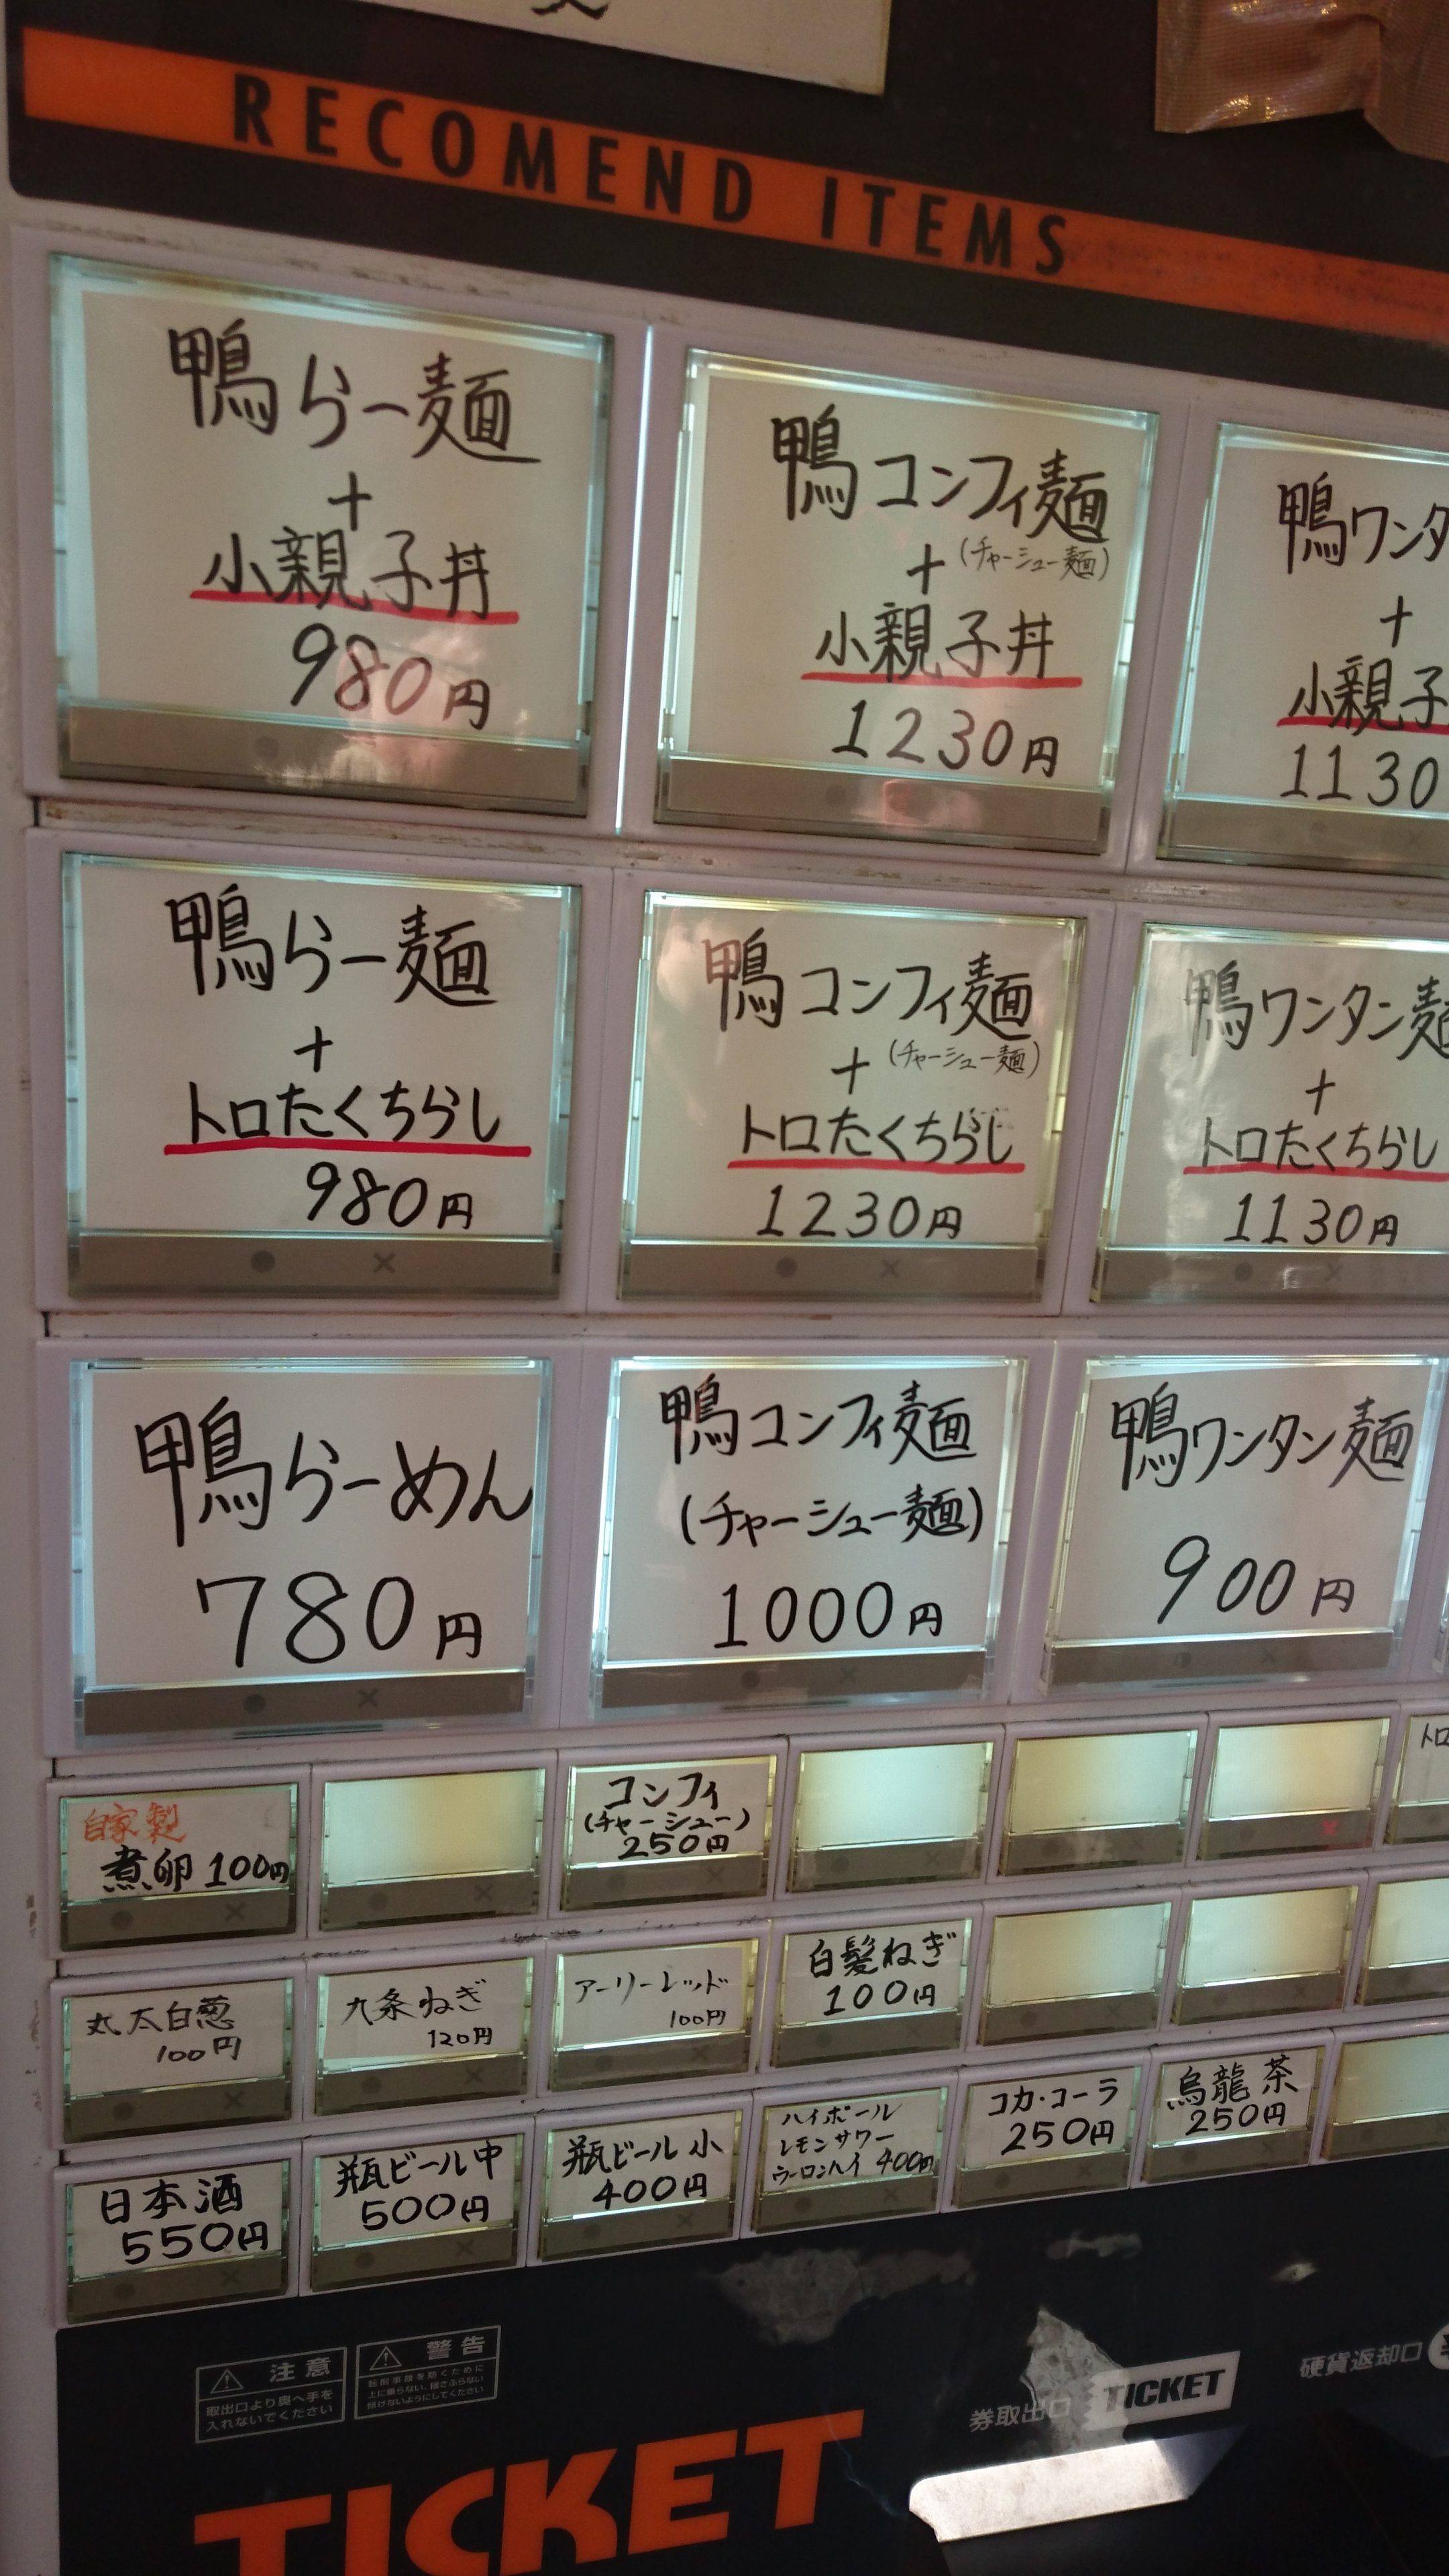 RECOMEND ITEMS
鴨らー麺
+
小親子丼
980円
鴨コンフィ麺
+(チャーシュー麺)
小親子丼
1230円
鴨ワンタ
+
小親子
1130
鴨らー麺
+
トロたくちらし
980円
鴨コンフィ麺
+(チャーシュー麺)
トロたくちらし
1230円
鴨ワンタン麺
+
トロたくちらし
1130円
鴨らーめん
780円
鴨コンフィ麺
(チャーシュー麺)
1000円
鴨ワンタン麺
900円
自家製
煮卵 100円
コンフィ
(チャーシュー)
250円
トロ
丸太白葱
100円
九条ねぎ
120円
アーリーレッド
100円
白髪ねぎ
100円
日本酒
550円
瓶ビール中
500円
瓶ビール小
400円
ハイボール
レモンサワー
ウーロンハイ 400円
コカ・コーラ
250円
烏龍茶
250円
注意
取出口より奥へ手を
入れないでください
警告
転倒事故を防ぐために
上に乗らない、揺さぶらない
傾けないようにしてください
券取出口 TICKET
硬貨返却口
TICKET